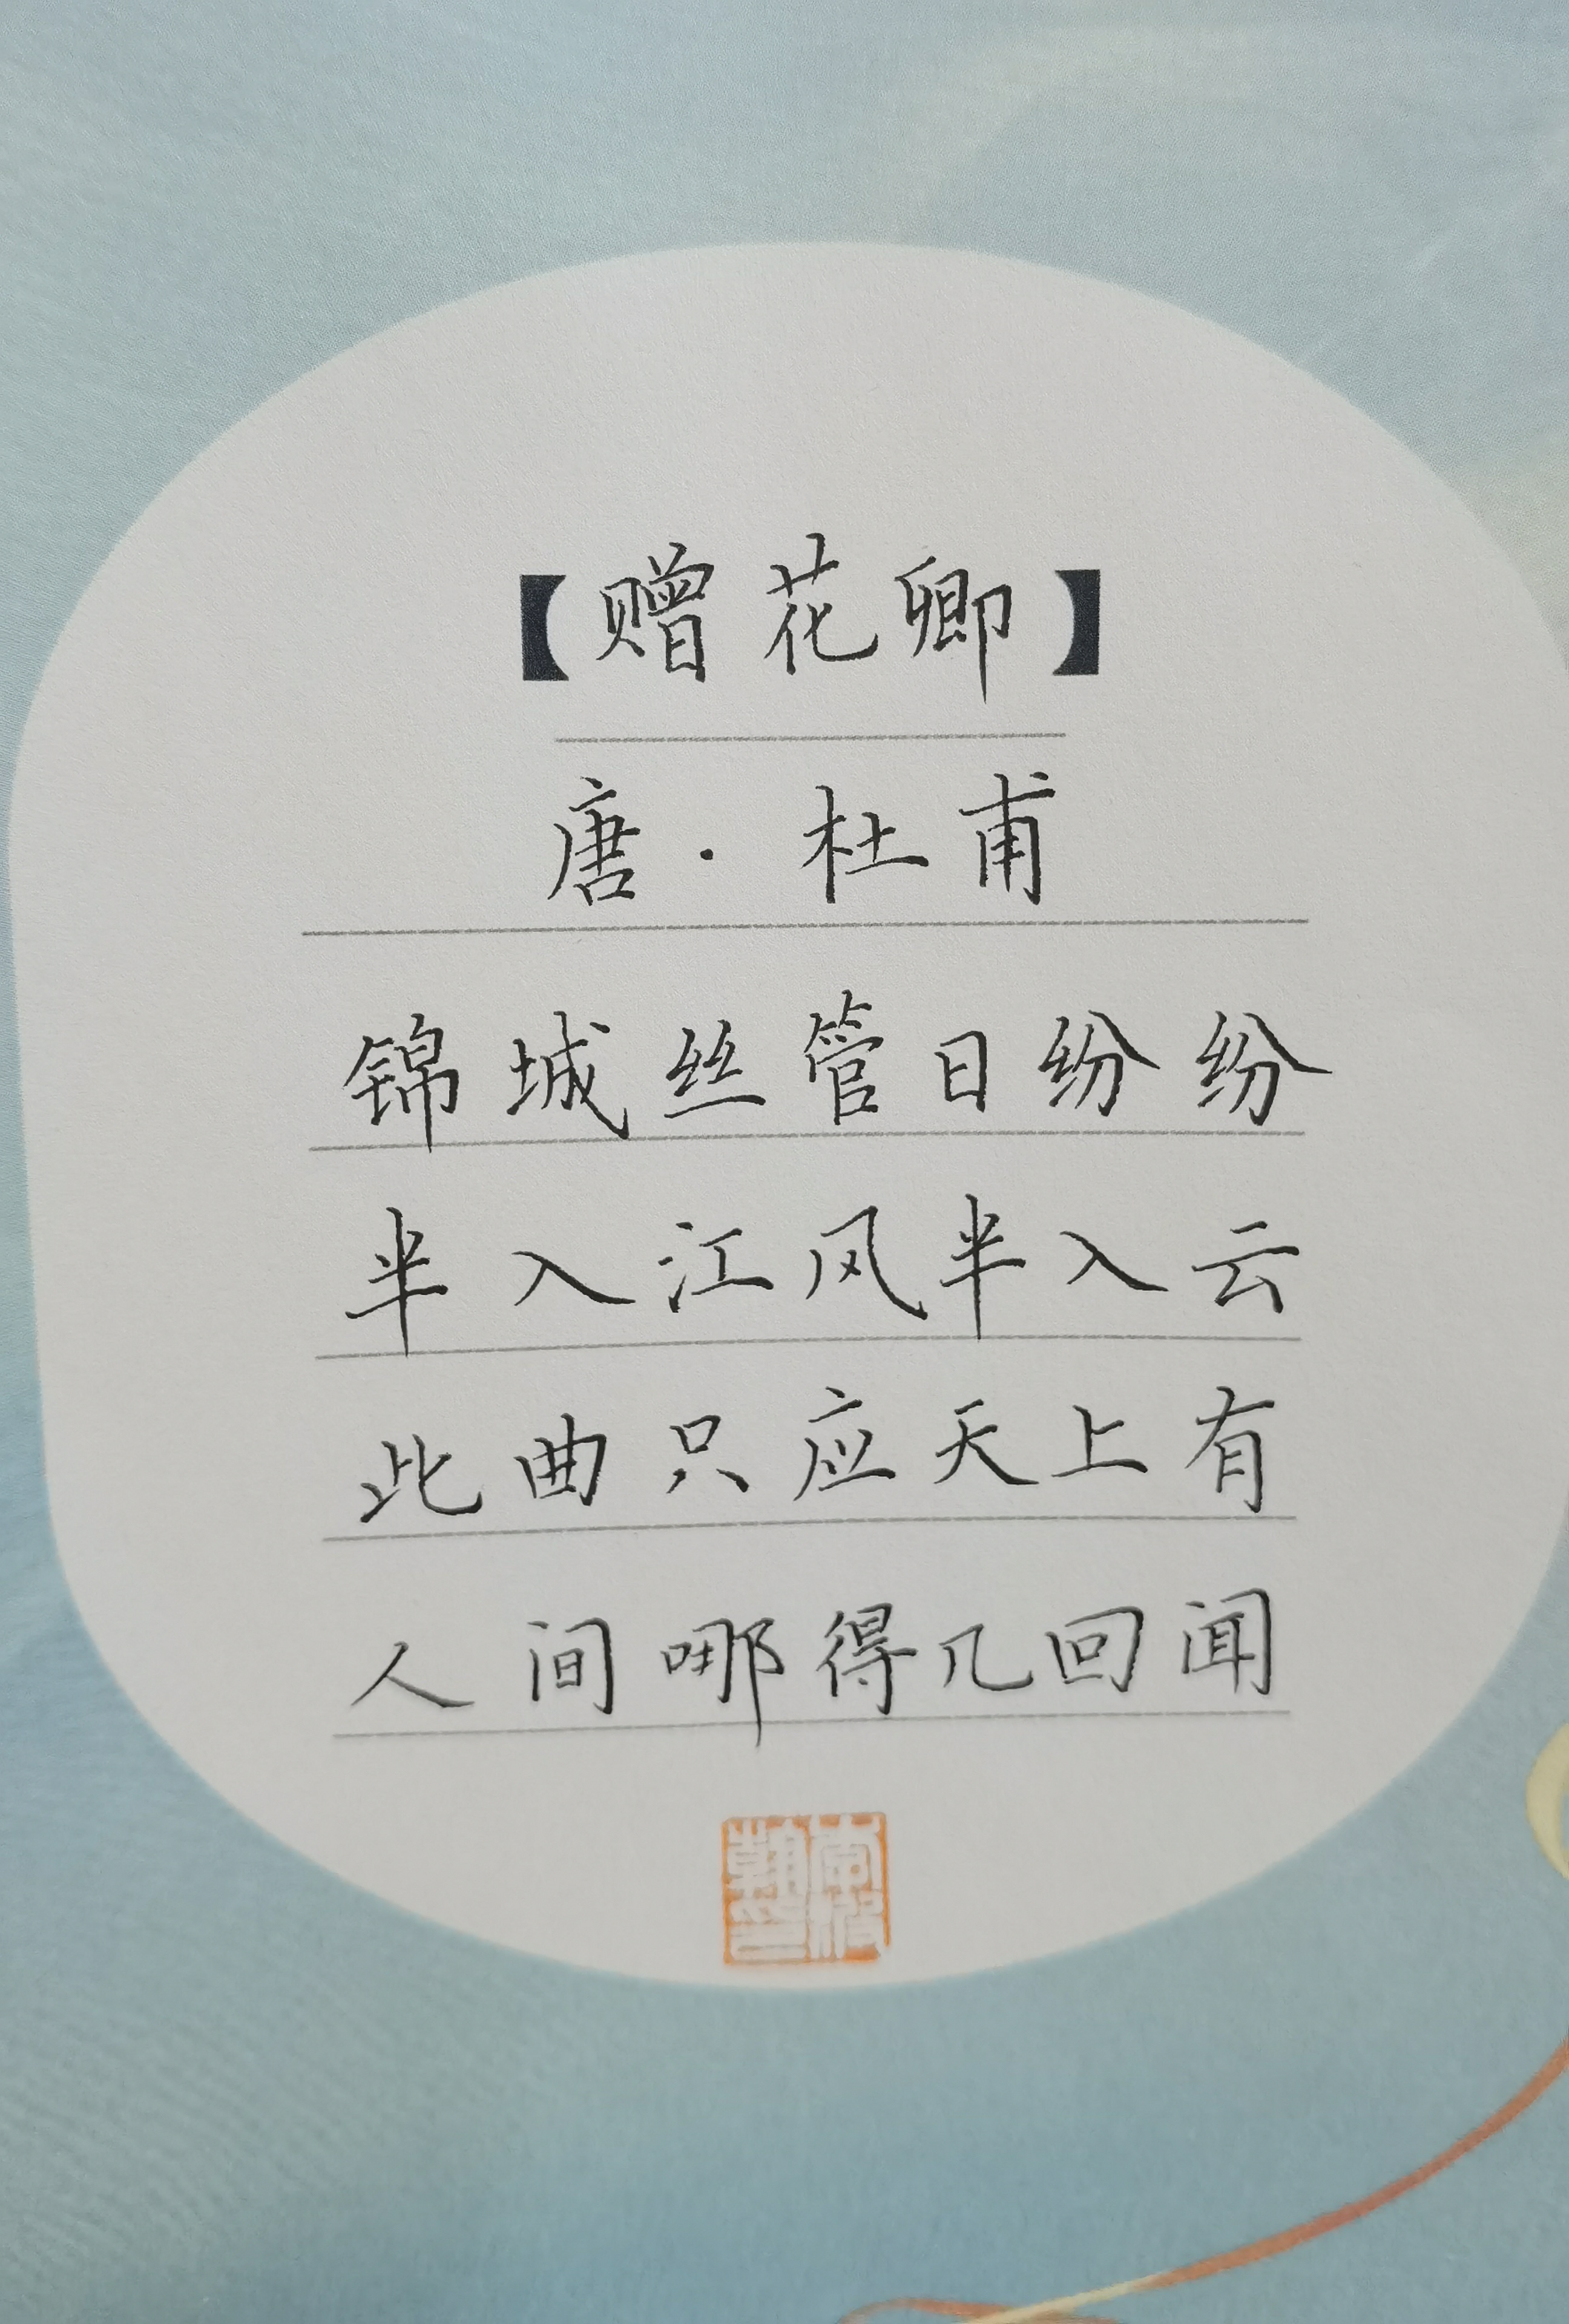 【赠花卿】
唐·杜甫
锦城丝管日纷纷
半入江风半入云
此曲只应天上有
人间哪得几回闻